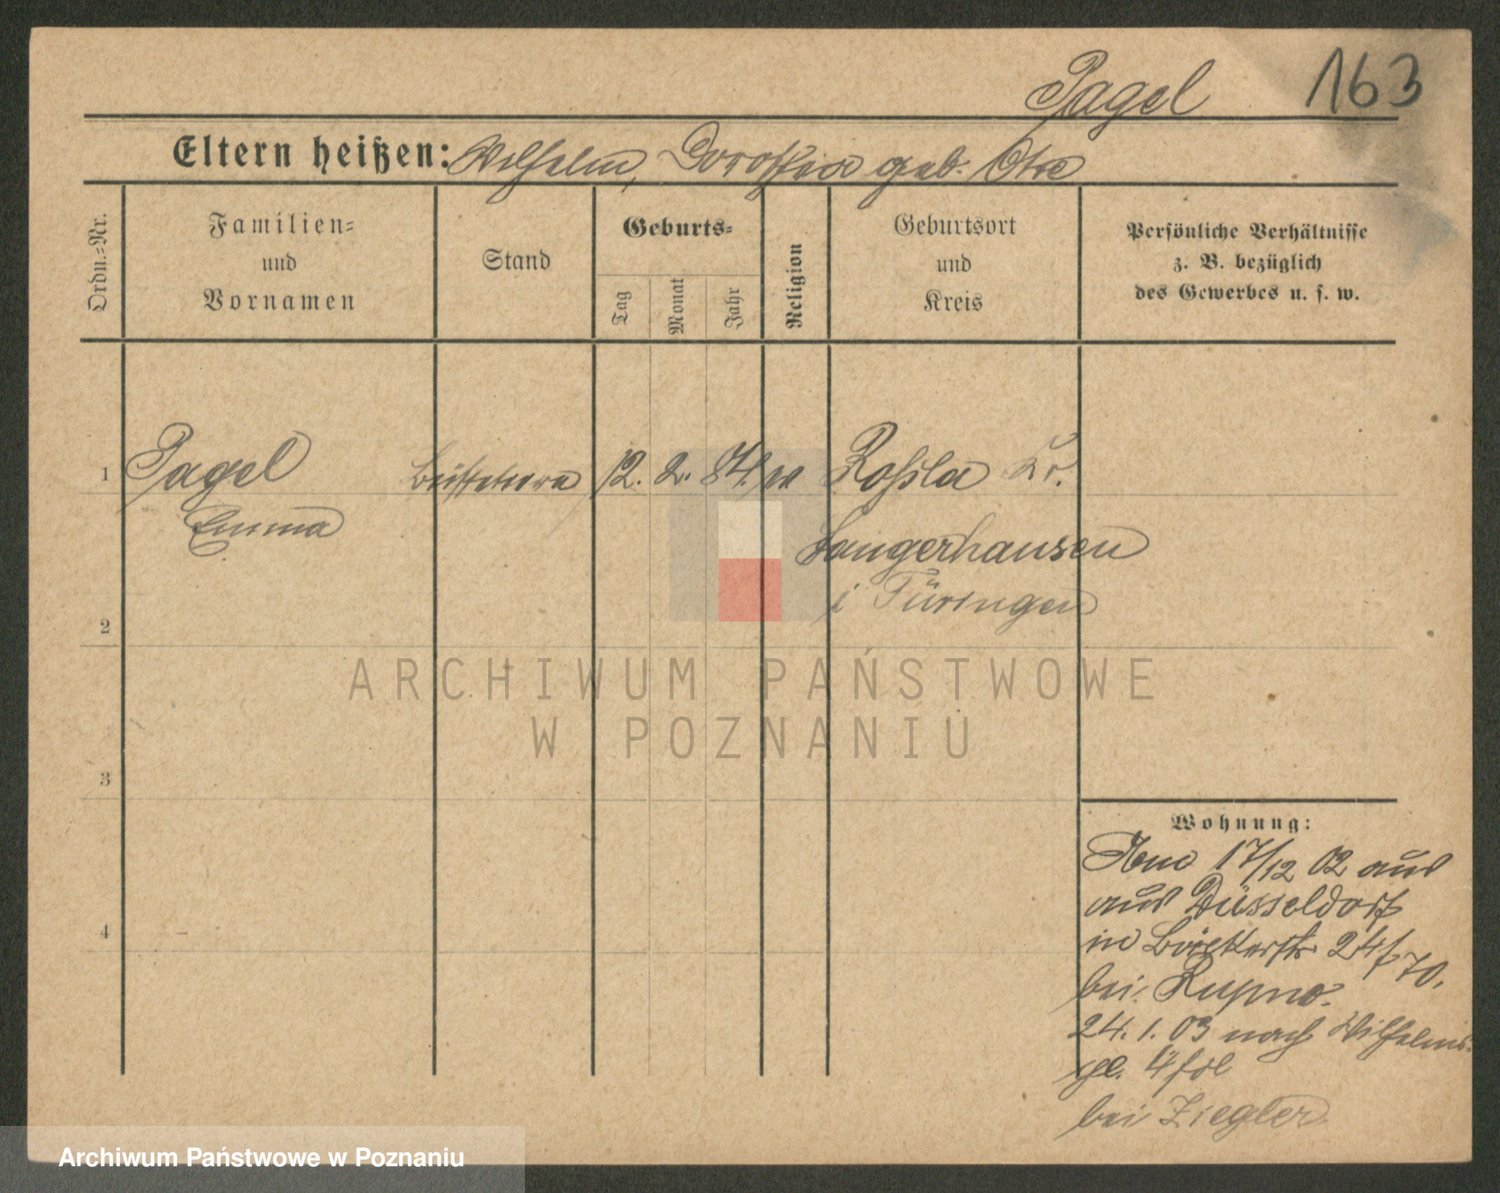 Pagel 163
Eltern heißen: Wilhelm, Dorothea geb. Otte
Ordn.=Nr.
Familien=
und
Vornamen
Stand
Geburts=
Tag
Monat
Jahr
Religion
Geburtsort
und
Kreis
Persönliche Verhältnisse
z. B. bezüglich
des Gewerbes u. s. w.
1 Pagel 12. 2. 84. Roßla Kr.
Emma
Sangerhausen
i Türingen
2
3
4
Wohnung:
17/12 02 aus
aus Düsseldorf
in 24/70.
bei
24. 1. 03 nach Wilhelms
pl. 4
bei Ziegler
ARCHIWUM PAŃSTWOWE
W POZNANIU
Archiwum Państwowe w Poznaniu